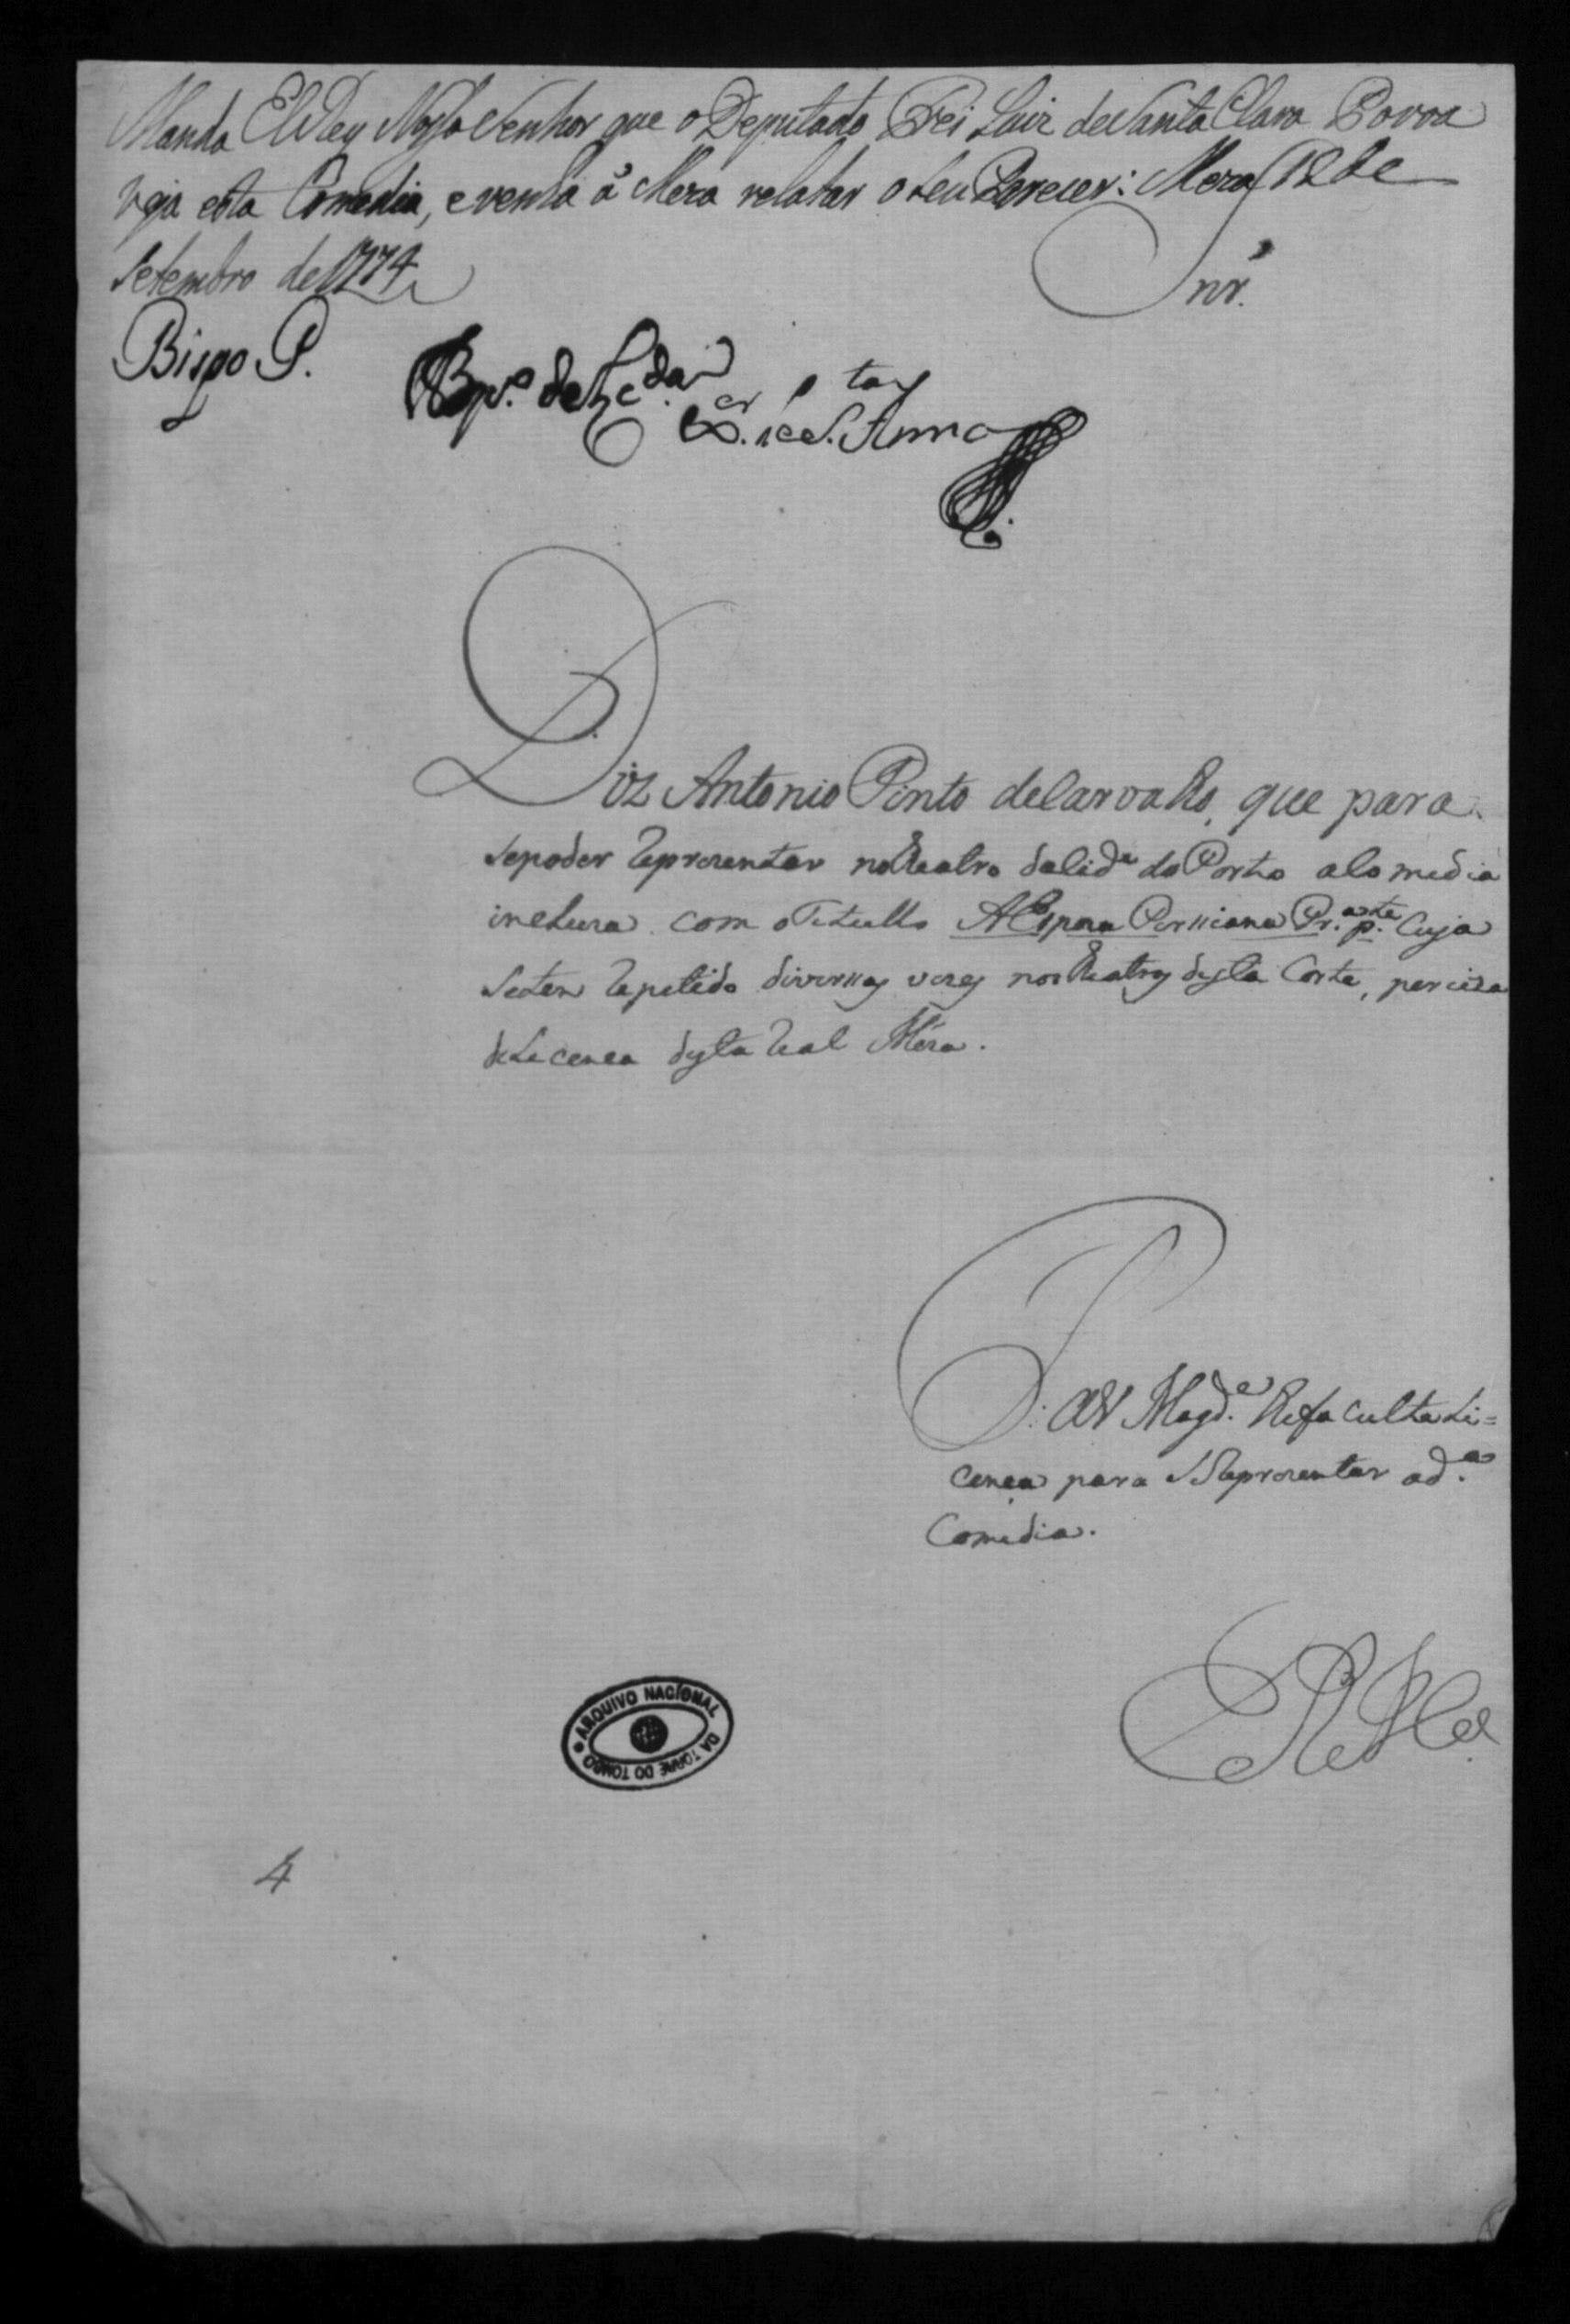 Manda ElRey Nosso Senhor que o Deputado Frei Luiz de Santa Clara Povoa
veja esta Comedia, e venha á Meza relatar o seu Parecer: Meza 12 de
Setembro de 1774
Snr.
Bispo P.
S. Anna
Diz Antonio Pinto de Carvalho, que para
se poder Reprezentar no Theatro da Cid.e do Porto a Comedia
incluza com o Titullo A Espoza Perssiana Pr.a p.te Cuja
se tem Repetido diverssas vezes nos Theatros desta Corte, perciza
de Licença desta Real Meza.
P. a V Mag.de lhe faculte Li=
cença para se Reprezentar a d.a
Comedia.
E R M.ce
ARQUIVO NACIONAL DA TORRE DO TOMBO
4